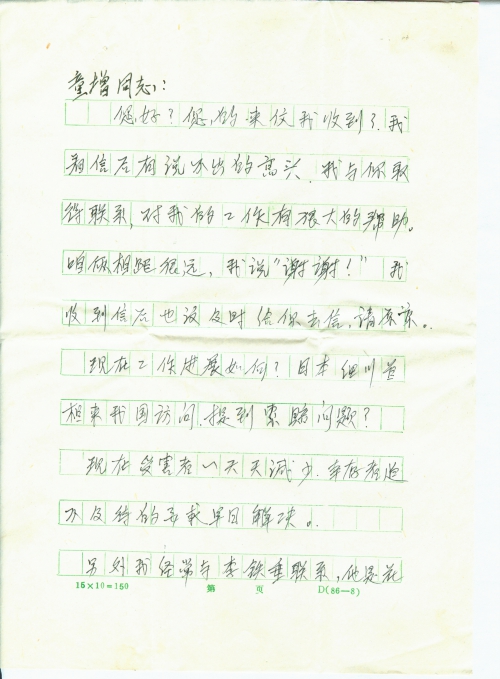 童增同志:
您好?您的来信我收到了.我
看信后有说不出的高兴.我与你取
得联系,对我的工作有很大的帮助。
咱俩相距很远,我说"谢谢!"我
收到信后也没及时给你去信,请原谅。
现在工作进展如何?日本细川首
相来我国访问.提到索赔问题?
现在受害者一天天减少.幸存者迫
不及待的等载早日解决。
另外我经常与李铁垂联系,他是花
15×10=150 第 页 D(86—8)